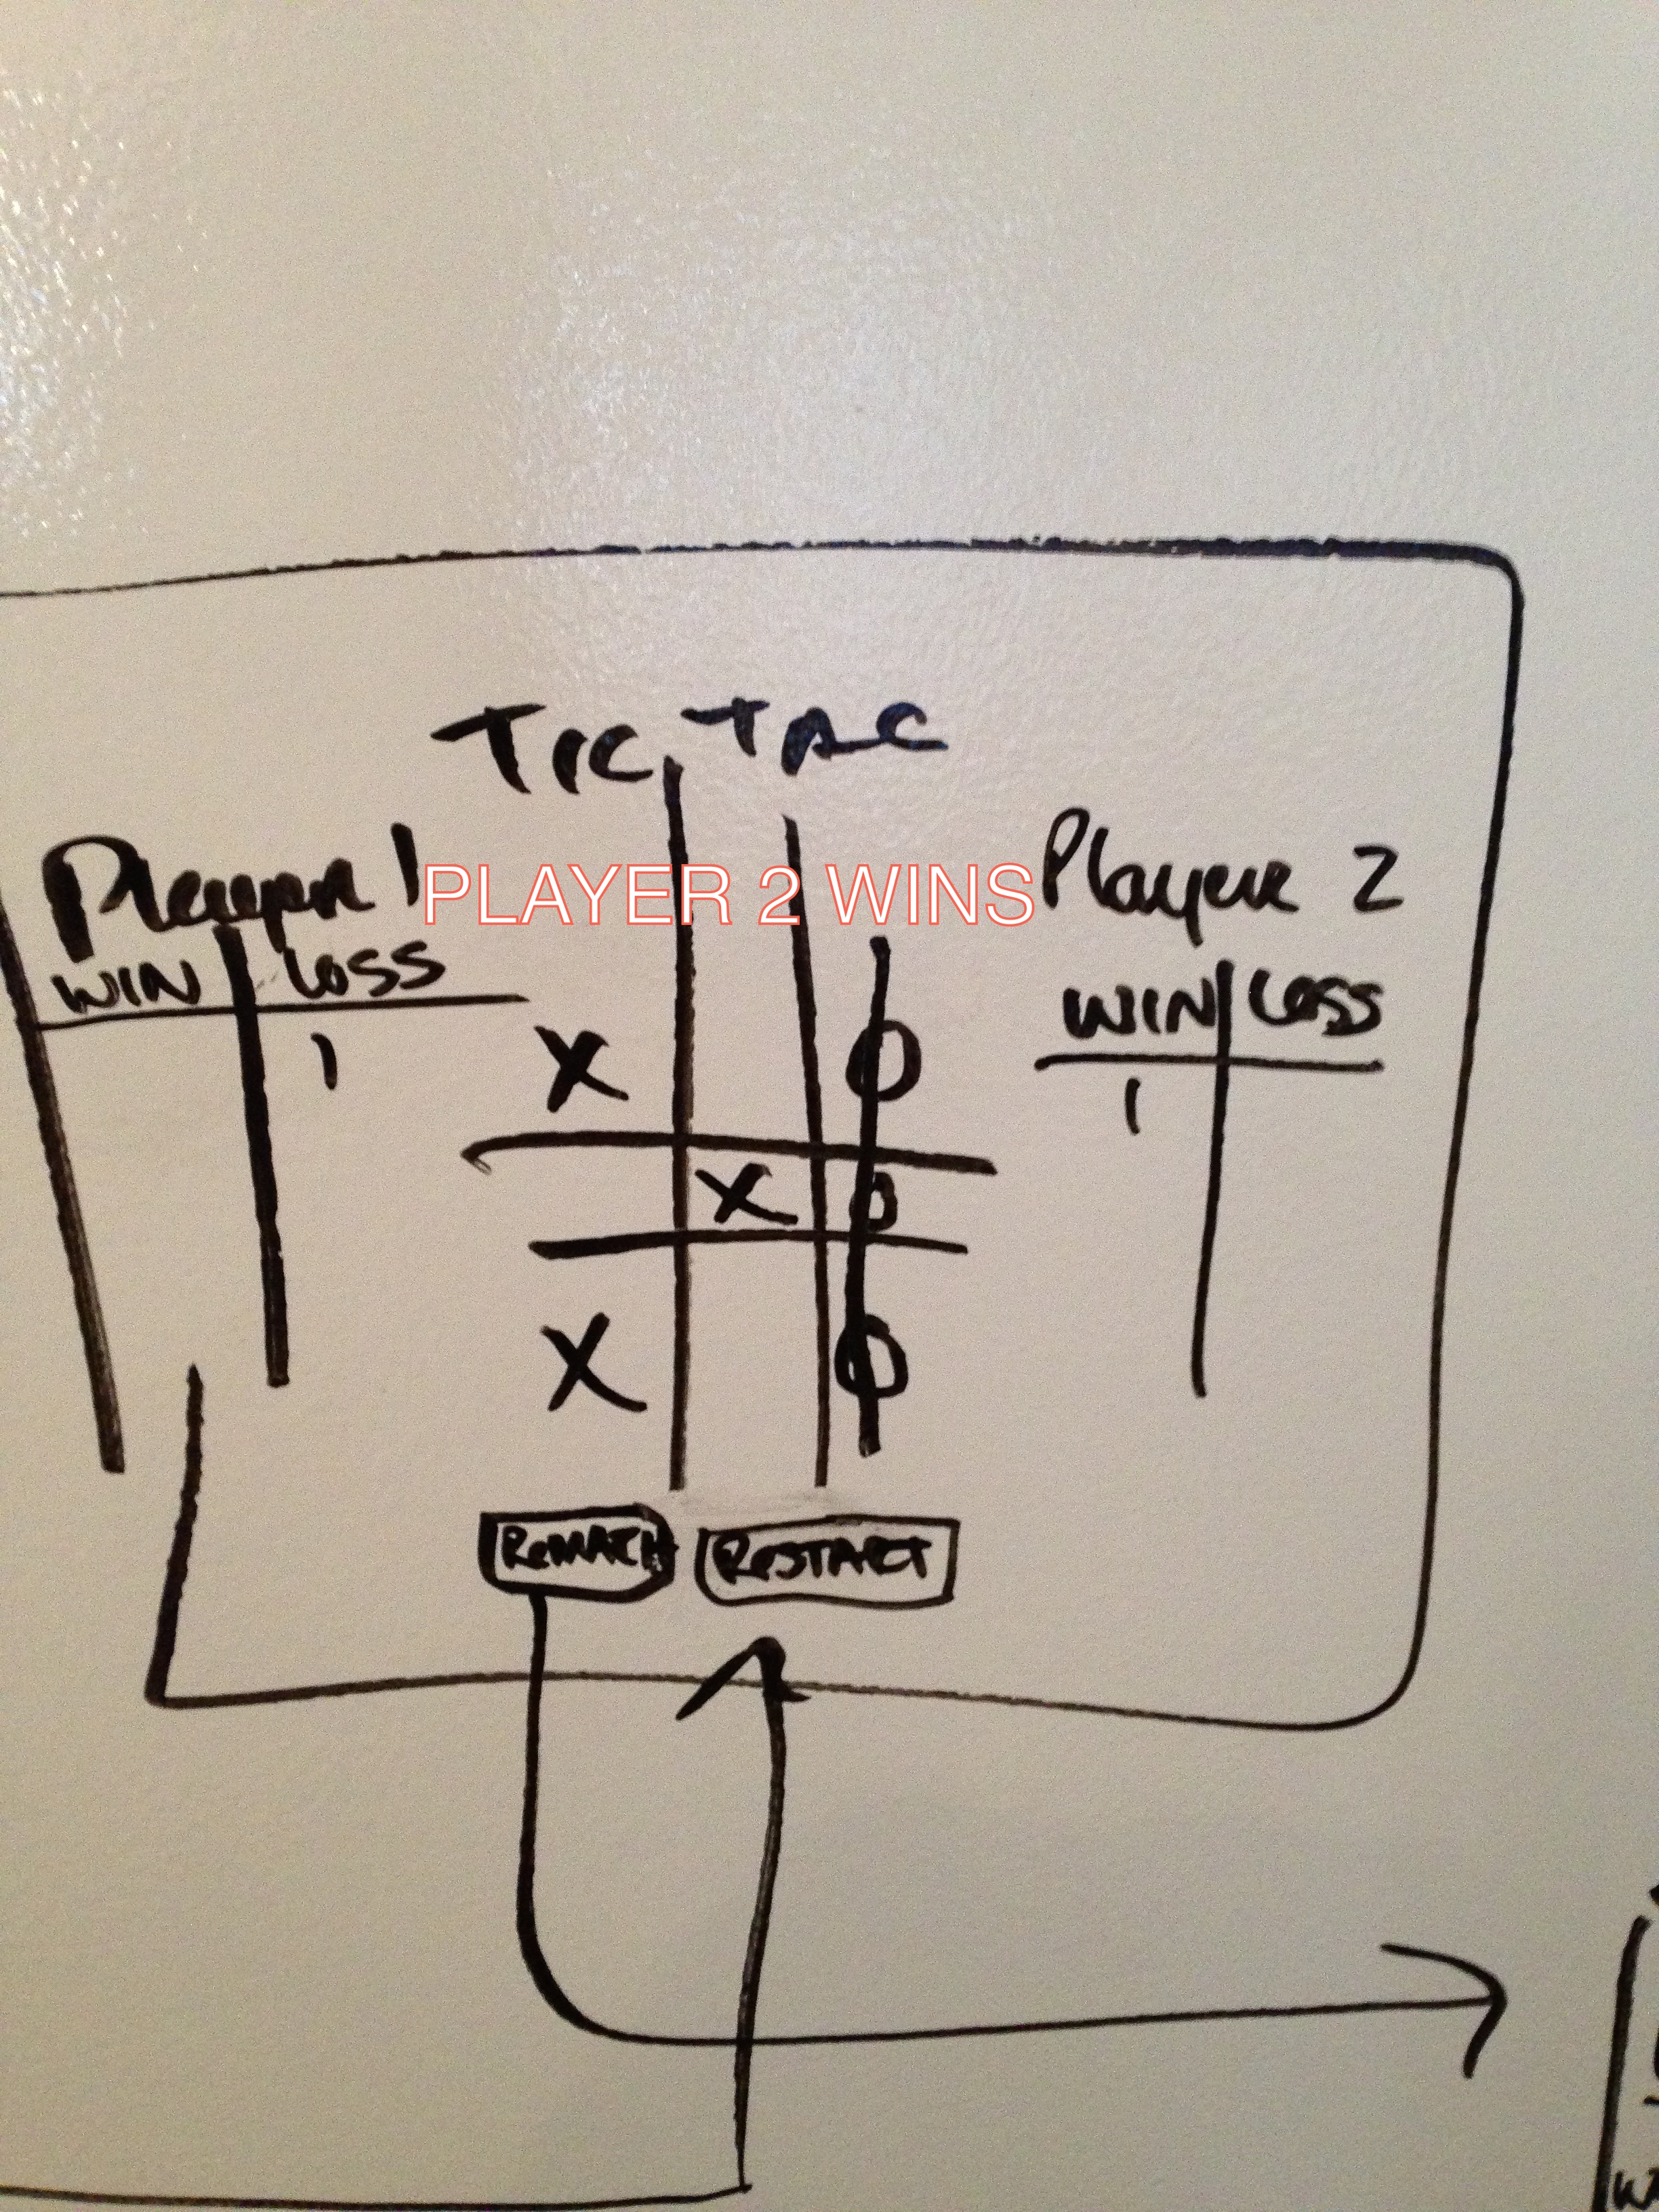 TIC TAC
Player 1
WIN LOSS
1
PLAYER 2 WINS
Player 2
WIN LOSS
1
X O
X O
X O
REMATCH RESTART